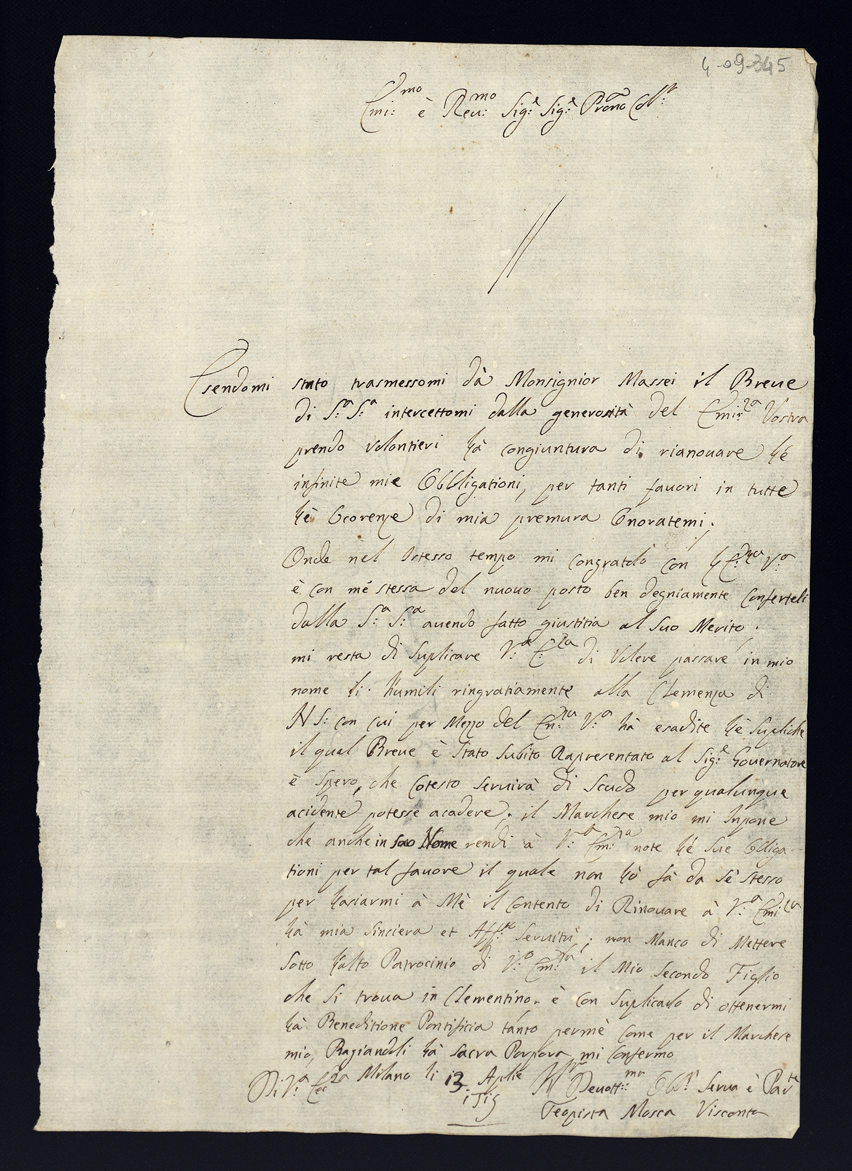 4-09-345
Emi:mo è Reu:mo Sig:r Sig:r Prone Col:o
Esendomi stato trasmessomi dà Monsignior Massei il Breue
di S:a S:a intercettomi dalla generosità del Emi:za Vostra
prendo volontieri là congiuntura di rianouare lé
infinite mie Obbligationi, per tanti fauori in tutte
lè Ocorenze di mia premura Onoratemi.
Onde nel Istesso tempo mi congratolo con V:a
è con mé stessa del nuouo posto ben degniamente Conferteli
dalla S:a S:a auendo fatto giustitia al Suo Merito.
mi resta di Suplicare V:a E:za di Volere passare in mio
nome li Humili ringratiamente alla Clemenza di
NS: con cui per Mezo del Em:za V:a hà esadite lé Supliche
il qual Breue è stato Subito Rapresentato al Sig:e Gouernatore
è Spero, che Cotesto Seruirà di Scudo per qualunque
acidente potesse acadere. il Marchese mio mi Inpone
che anche in Suo Nome rendi à V:a Em:za note lé Sue Obliga
tioni per tal fauore il quale non lo fà da sé stesso
per lasiarmi à Mè il Contento di Rinouare à V:a Emi:za
là mia Sinciera et Aff:te Seruitù; non Manco di Mettere
Sotto lalto Patrocinio di V:a Em:za il Mio Secondo Figlio
che Si troua in Clementino. è Con Suplicarlo di ottenermi
là Beneditione Pontificia tanto permè Come per il Marchese
mio, Bagiandoli là Sacra Porpora mi Confermo
Di V:a Milano li 13 Aplie Deuott:ma Obl: Serua è
Teopista Mosca Visconte